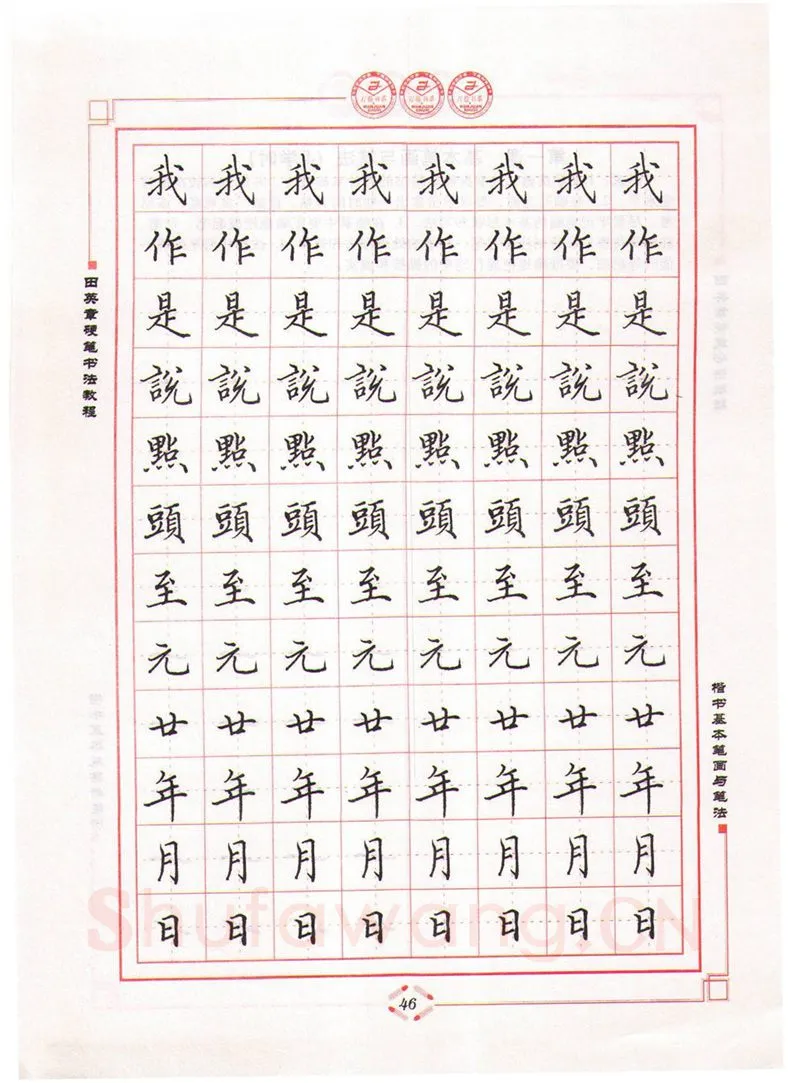 田英章硬笔书法教程
我我我我我我我我
作作作作作作作作
是是是是是是是是
說說說說說說說說
點點點點點點點點
頭頭頭頭頭頭頭頭
至至至至至至至至
元元元元元元元元
廿廿廿廿廿廿廿廿
年年年年年年年年
月月月月月月月月
日日日日日日日日
楷书基本笔画与笔法
Shufawang.CN
46